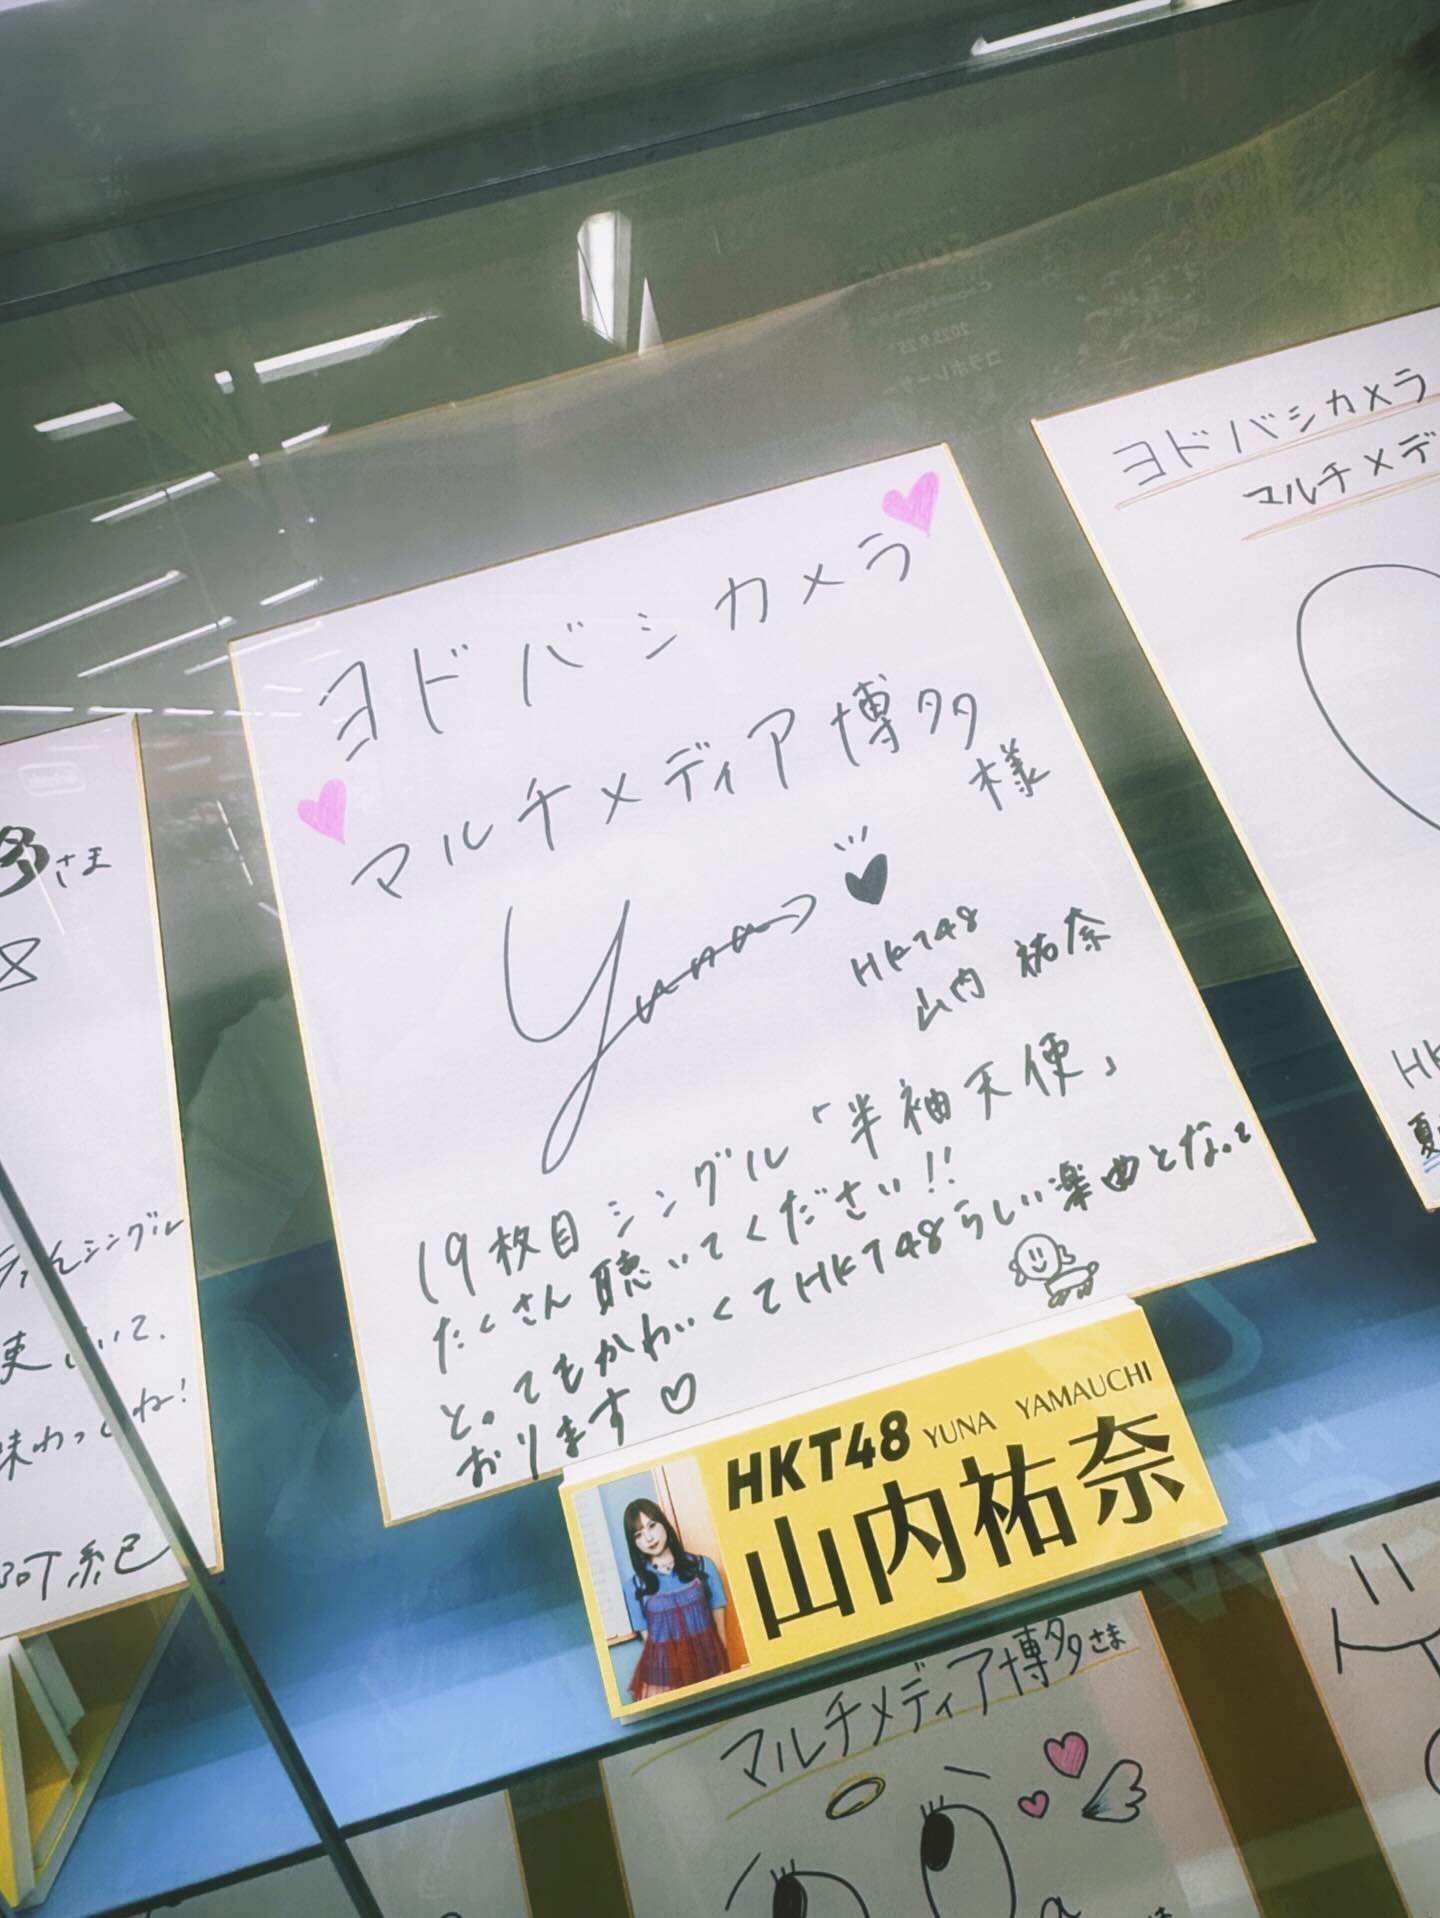 ヨドバシカメラ
マルチメディア博多
様
Yuna
HKT48
山内 祐奈
19枚目シングル「半袖天使」
たくさん聴いてください!!
とってもかわいくてHKT48らしい楽曲となって
おります♡
HKT48 YUNA YAMAUCHI
山内祐奈
ヨドバシカメラ
マルチメデ
HK
夏
さま
シングル
いて、
味わってね!
マルチメディア博多さま
2025.9.25